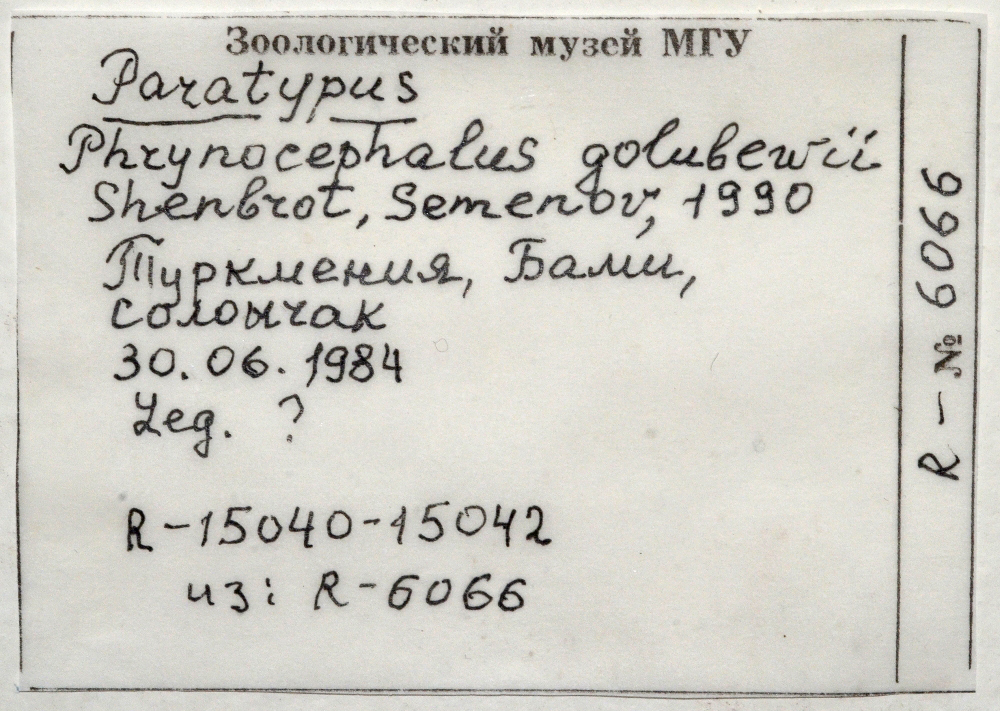 Зоологический музей МГУ
Paratypus
Phrynocephalus golubewii
Shenbrot, Semenov, 1990
Туркмения, Бами,
солончак
30.06.1984
Leg. ?
R-15040-15042
из: R-6066
R-№ 6066